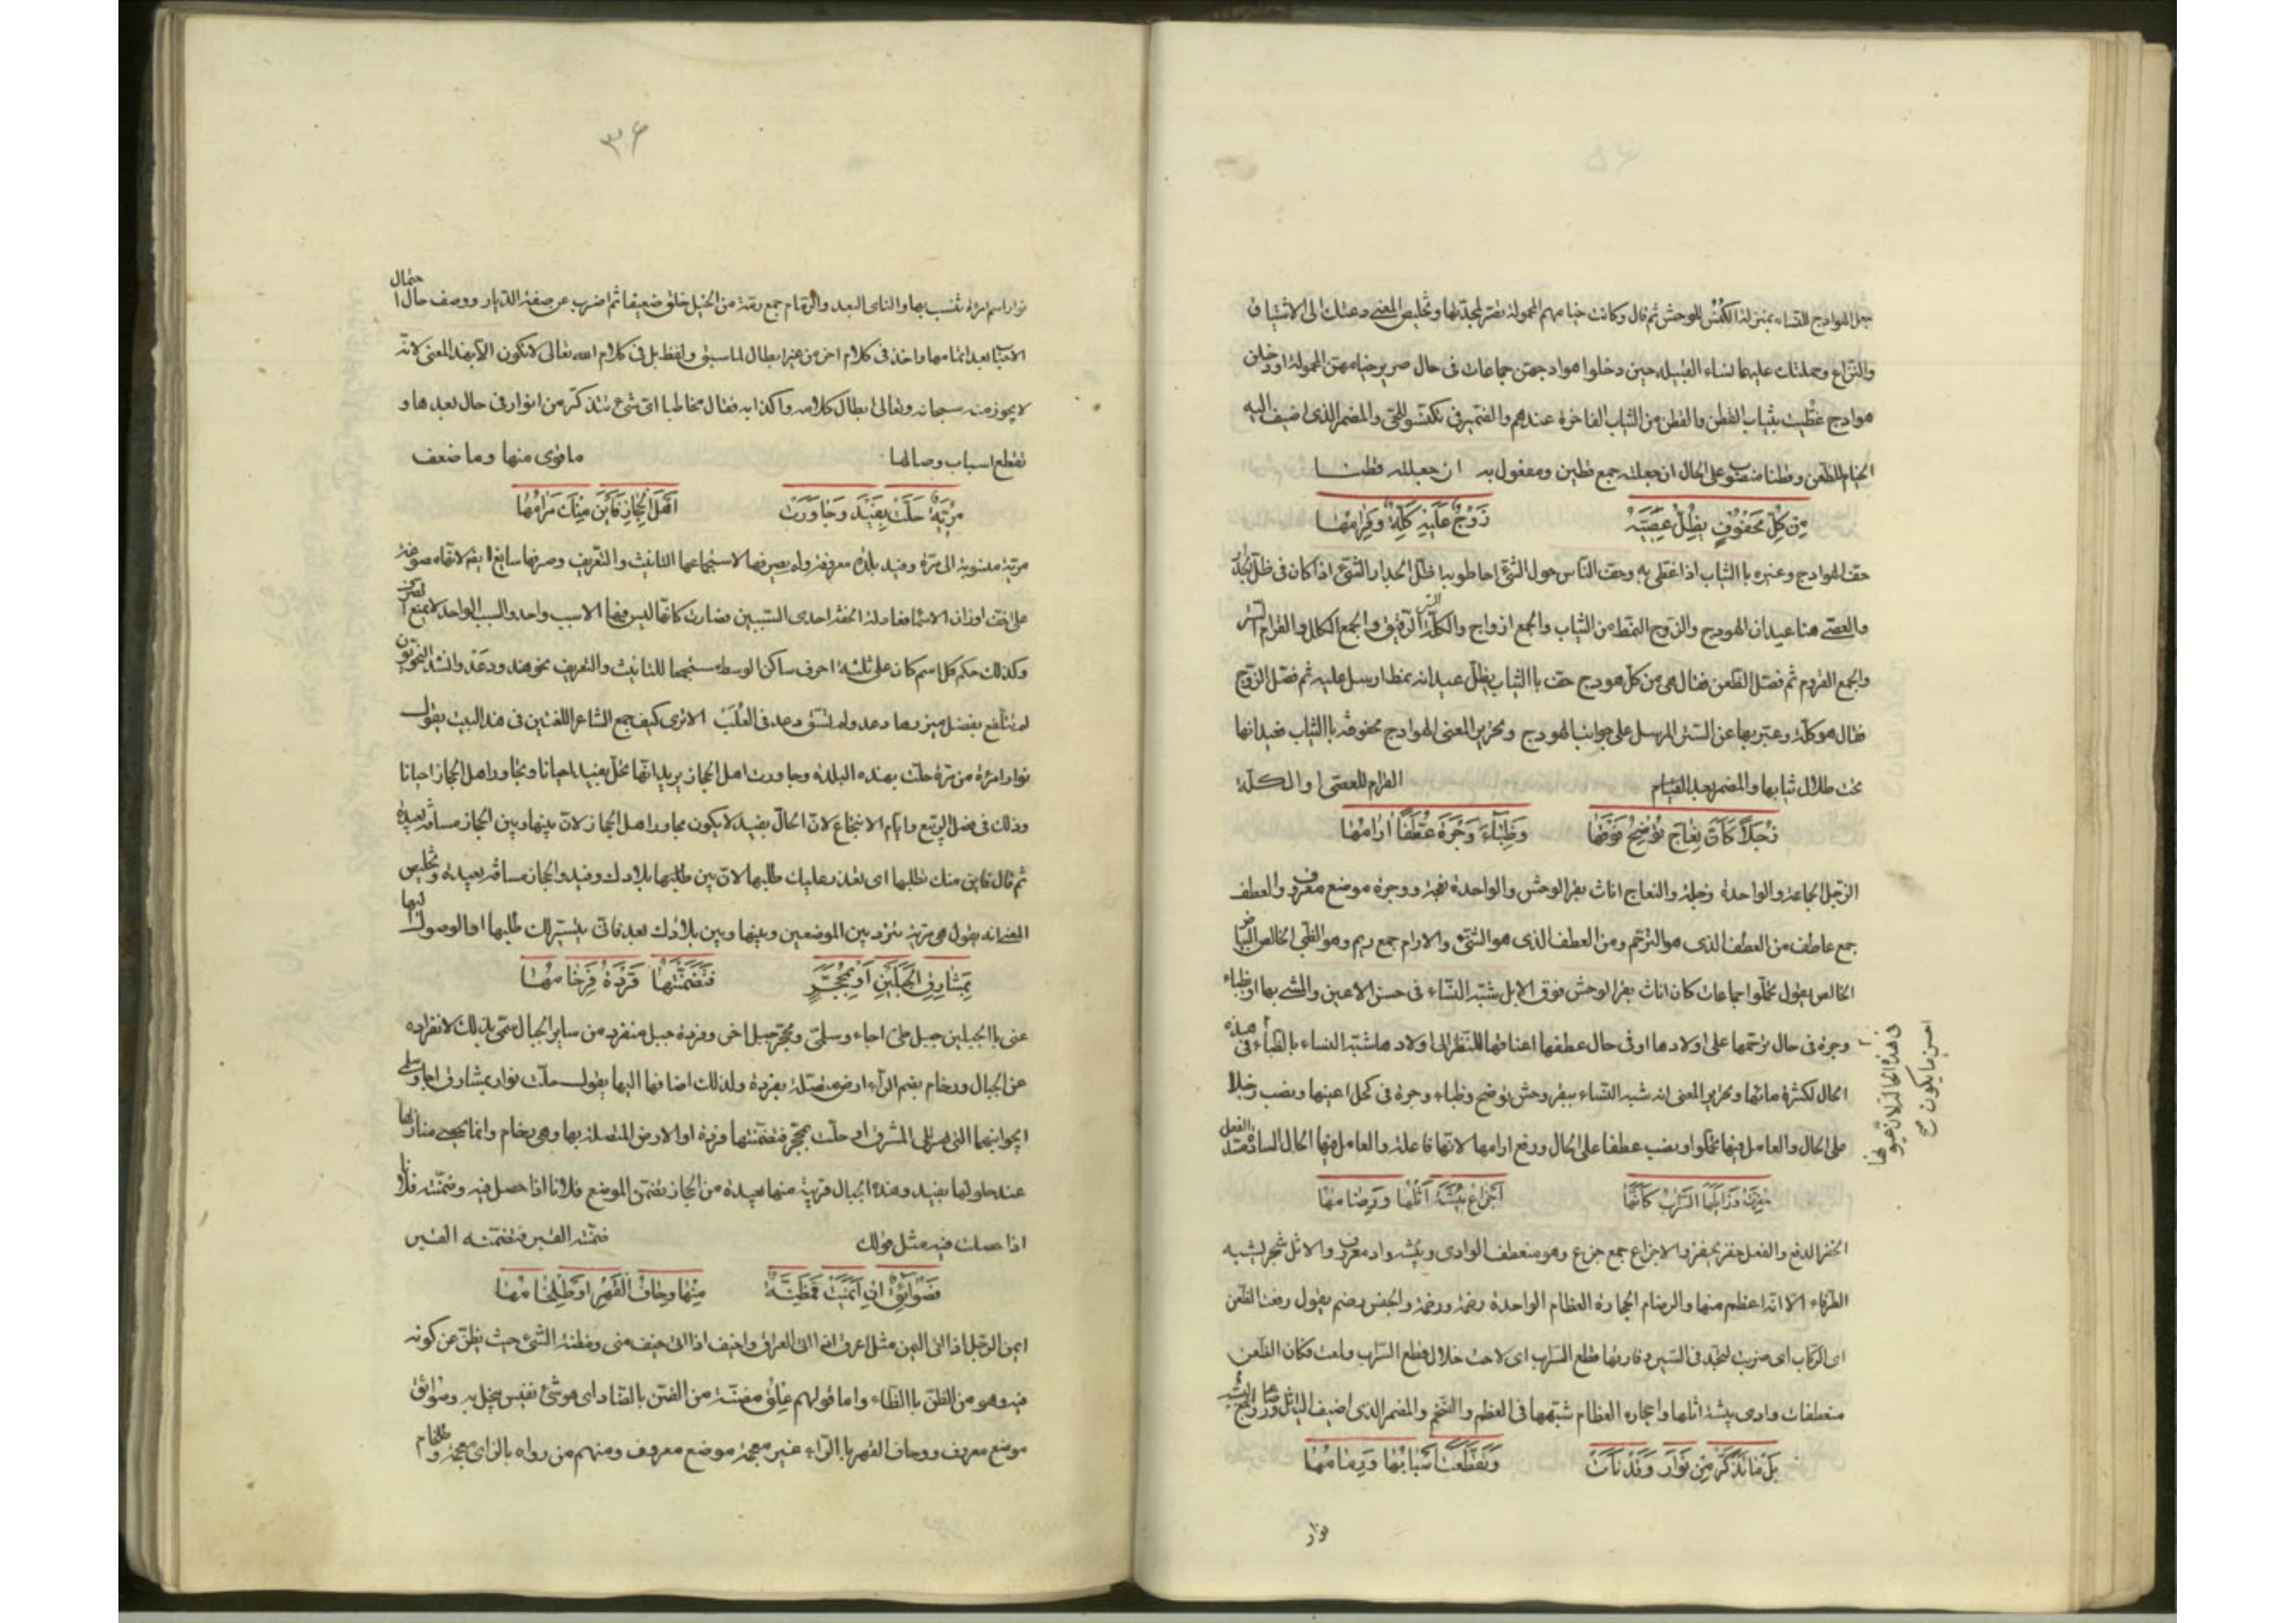 جعل الهوادج للنساء بمنزلة الكنس للوحش ثم قال وكانت خيامهم المحمولة تصر لجدتها وتلخيص المعنى دعتك الى الاشتياق
والنزاع وحملتك عليهما نساء القبيلة حين دخلوا هوادجهن جماعات فى حال صرير خيامهن المحمولة او دخلن
هوادج غطيت بثياب القطن والقطن من الثياب الفاخرة عندهم والضمير فى تكنسوا للحى والمضمر الذى اضيف اليه
الخيام للظعن وقطنا منصوب على الحال ان جعلته جمع قطين ومفعول به ان جعلته قطنا
مِن كُلِّ مَحفُوفٍ يُظِلُّ عِصِيَّهُ زَوجٌ عَلَيهِ كِلَّةٌ وَقِرامُها
حف الهوادج وغيره باالثياب اذا غطى به وحف الناس حول الشئ احاطوا به اظل الجدار الشئ اذا كان فى ظل الجدار
والعصى هنا عيدان الهودج والزوج النمط من الثياب والجمع ازواج والكلة الستر الرقيق والجمع الكلل والقرام الستر
والجمع القروم ثم فصل الظعن فقال هى من كل هودج حف باالثياب يظل عيدانه نمط ارسل عليه ثم فصل الزوج
فقال هو كلة وعبر بها عن الستر المرسل على جوانب الهودج وتحرير المعنى الهوادج محفوفة باالثياب فعيدانها
تحت ظلال ثيابها والمضمر بعد القرام للعصى او الكلة
زُجَلاً كَأَنَّ نِعَاجَ تُوضِحَ فَوقَها وَظِباءَ وَجرَةَ عُطَّفاً ارامُها
الزجل الجماعة والواحدة زجلة والنعاج اناث بقر الوحش والواحدة نعجة ووجرة موضع معروف والعطف
جمع عاطف من العطف الذى هو الترحم ومن العطف الذى هو الثنى والارام جمع ريم وهو الظبى الخالص البياض
الخالص يقول تحملوا جماعات كان اناث بقر الوحش فوق الابل شبه النساء فى حسن الاعين والمشى بها او ظباء
وجرة فى حال ترحمها على اولادها او فى حال عطفها اعناقها للنظر الى اولادها شبه النساء باالظباء فى هذه
الحال لكثرة مائها وتحرير المعنى انه شبه النساء ببقر وحش توضح وظباء وجرة فى كحل اعينها ونصب زجلا
على الحال والعامل فيها تحملوا ونصب عطفا على الحال ورفع ارامها لانها فاعلة والعامل فيها الحال السادة مسد الفعل
فى هذه الحالة لان عيونها
احسن ما يكون صح
حُفِزَت وَزَايَلَها السَّرابُ كَأَنَّها أَجزاعُ بِيشَةَ أَثلُها وَرِضامُها
الحفز الدفع والفعل حفز يحفز والاجزاع جمع جزع وهو منعطف الوادى وبيشة واد معروف والاثل شجر يشبه
الطرفاء الا انه اعظم منها والرضام الحجارة العظام الواحدة رضمة والجنس رضم يقول دفعت الظعن
اى الركاب اى ضربت لتجد فى السير وفارقها قطع السراب اى لاحت خلال قطع السراب ولمعت فكان الظعن
منعطفات وادى بيشة اثلها واحجاره العظام شبهها فى العظم والضخم والمضمر الذى اضيف
بَل ما تَذَكَّرُ مِن نَوارَ وَقَد نَأَت وَتَقَطَّعَت أَسبابُها وَرِمامُها
نوار
٣۶
نوار اسم امراة تشبب بها والناى البعد والرمام جمع رمة من الحبل خلق ضعيف ثم اضرب عن صفة الديار ووصف حال احتمال
الاحباب بعد اتمامها واخذ فى كلام اخر من غير ابطال لما سبق ولفظ بل فى كلام الله تعالى لا تكون الا بهذا المعنى لانه
لا يجوز منه سبحانه وتعالى ابطال كلامه واكذابه فقال مخاطبا اى شئ تتذكر من نوار فى حال بعدها و
تقطع اسباب وصالها ما قوى منها وما ضعف
مُرِّيَّةٌ حَلَّت بِفَيدَ وَجَاوَرَت أَهلَ الحِجازِ فَأَينَ مِنكَ مَرامُها
مرية منسوبة الى مرة وفيد بلدة معروفة ولم يصرفها لاستجماعها التانيث والتعريف وصرفها سايغ ايضا لانها مصوغة
على اخف اوزان الاسماء فعادلت الخفة احدى السببين فصارت كانها ليس فيها الا سبب واحد والسبب الواحد لا يمنع الصرف
وكذلك حكم كل اسم كان على ثلثة احرف ساكن الوسط مستجمعا للتانيث والتعريف نحو هند ودعد وانشد النحويون
لم تتلفع بفضل ميزرها دعد ولم تسق دعد فى العُلَب الا ترى كيف جمع الشاعر اللغتين فى هذا البيت يقول
نوار امرءة من مرة حلت بهذه البلدة وجاورت اهل الحجاز يريد انها تحل بفيد احيانا وتجاور اهل الحجاز احيانا
وذلك فى فصل الربيع وايام الانتجاع لان الحال بفيد لا يكون مجاور اهل الحجاز لان بينها وبين الحجاز مسافة بعيدة
ثم قال فاين منك طلبها اى تعذر عليك طلبها لان بين طلبها بلادك وفيد والحجاز مسافة بعيدة وتلخيص
المعنى انه يقول هى مرية تتردد بين الموضعين وبينها وبين بلادك بعد فانى يتيسر لك طلبها او الوصول اليها
بِمَشارِقِ الجَبَلَينِ أَو بِمُحَجَّرٍ فَتَضَمَّنَتها فَردَةٌ فَرُخامُها
عنى باالجبلين جبلى طى اجاء وسلمى ومحجر جبل اخر وفردة جبل منفرد من ساير الجبال سمى بذلك لانفراده
عن الجبال ورخام بضم الراء ارض متصلة بفردة ولذلك اضافها اليها يقول حلت نوار بمشارق اجا وسلمى
اى جوانبهما التى تلى المشرق او حلت بمحجر فتضمنتها فردة او الارض المتصلة بها وهى رخام وانما يحصى منازلها
عند حلولها بفيد وهذه الجبال قريبة منها بعيدة من الحجاز تضمن الموضع فلانا اذا حصل فيه وضمنته فلانا
اذا حصلت فيه مثل قولك ضمنته القبر فتضمنه القبر
فَصُوَائِقٌ إِن أَيمَنَت فَمَظِنَّةٌ مِنها وِحافُ القَهرِ أَو طِلخامُها
ايمن الرجل اذا اتى اليمن مثل اعرق اذا اتى العراق واخيف اذا اتى خيف منى ومظنة الشئ حيث يظن من كونه
فيه وهو من الظن باالظاء واما قولهم عِلق مضنة من الضن بالضاد اى هو شئ نفيس يبخل به وصوائق
موضع معروف ووحاف القهر باالراء غير معجمة موضع معروف ومنهم من رواه بالزاى معجمة وطلخام